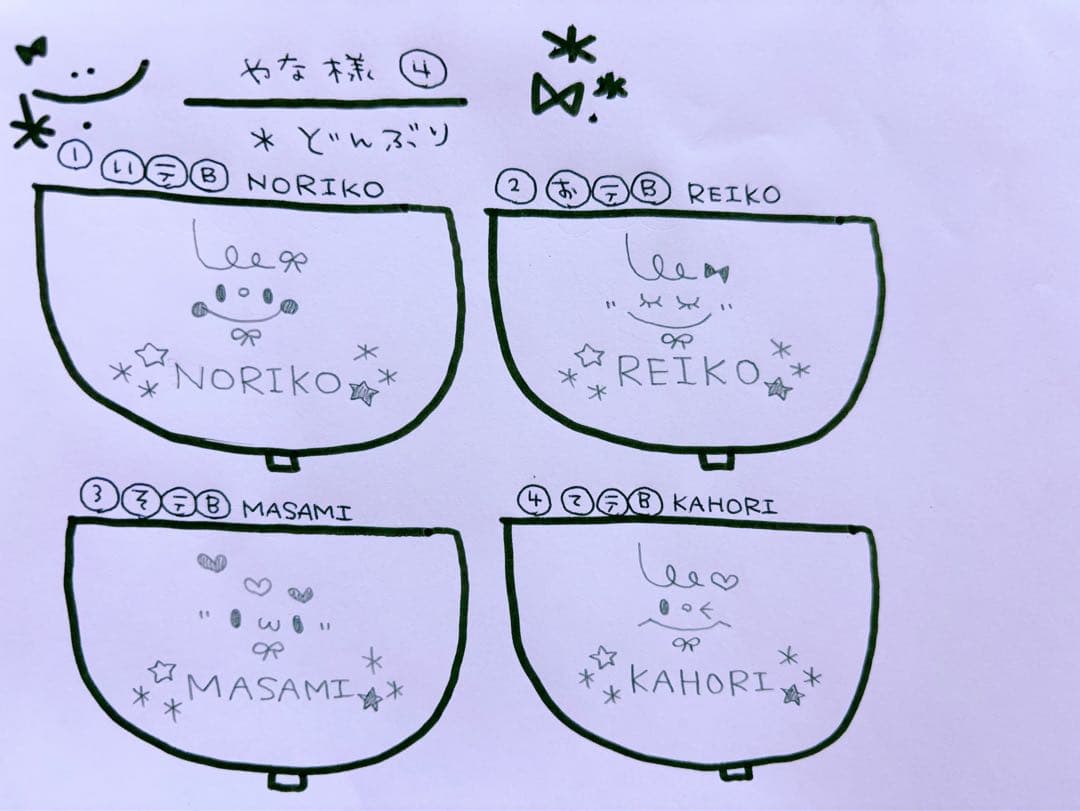 やな様 ④
* どんぶり
① い デ B NORIKO
② お デ B REIKO
NORIKO
REIKO
③ そ デ B MASAMI
④ て デ B KAHORI
MASAMI
KAHORI